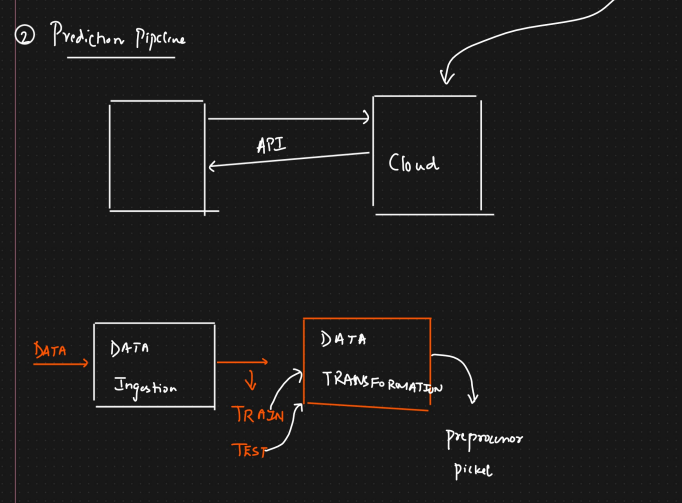 ② Prediction Pipeline
API
Cloud
DATA
DATA
Ingestion
TRAIN
TEST
DATA
TRANSFORMATION
preprocessor
pickel